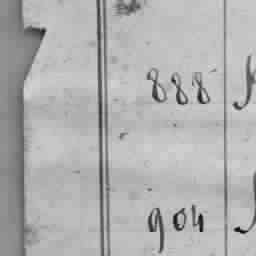 888
904